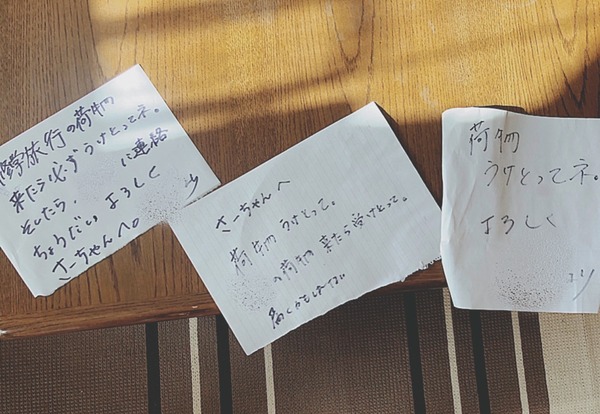 修学旅行の荷物
来たら必ずうけとってネ。
そしたら、
に連絡
ちょうだい よろしく
さーちゃんへ。
さーちゃんへ
荷物うけとって。
の荷物 来たら受けとって。
届くかもしれない
荷物
うけとってネ。
よろしく